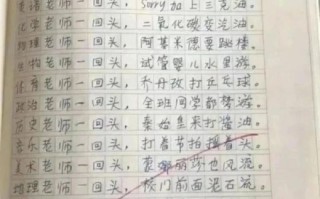 英语老师一回头，Sorry加上三克油。
化学老师一回头，二氧化碳变汽油。
物理老师一回头，阿基米德要跳楼。
生物老师一回头，试管婴儿水里游。
体育老师一回头，乔丹改打乒乓球。
政治老师一回头，全班同学都梦游。
历史老师一回头，秦始皇来打酱油。
音乐老师一回头，打着节拍摇着头。
美术老师一回头，蒙娜丽莎也风流。
地理老师一回头，门前面泥石流。